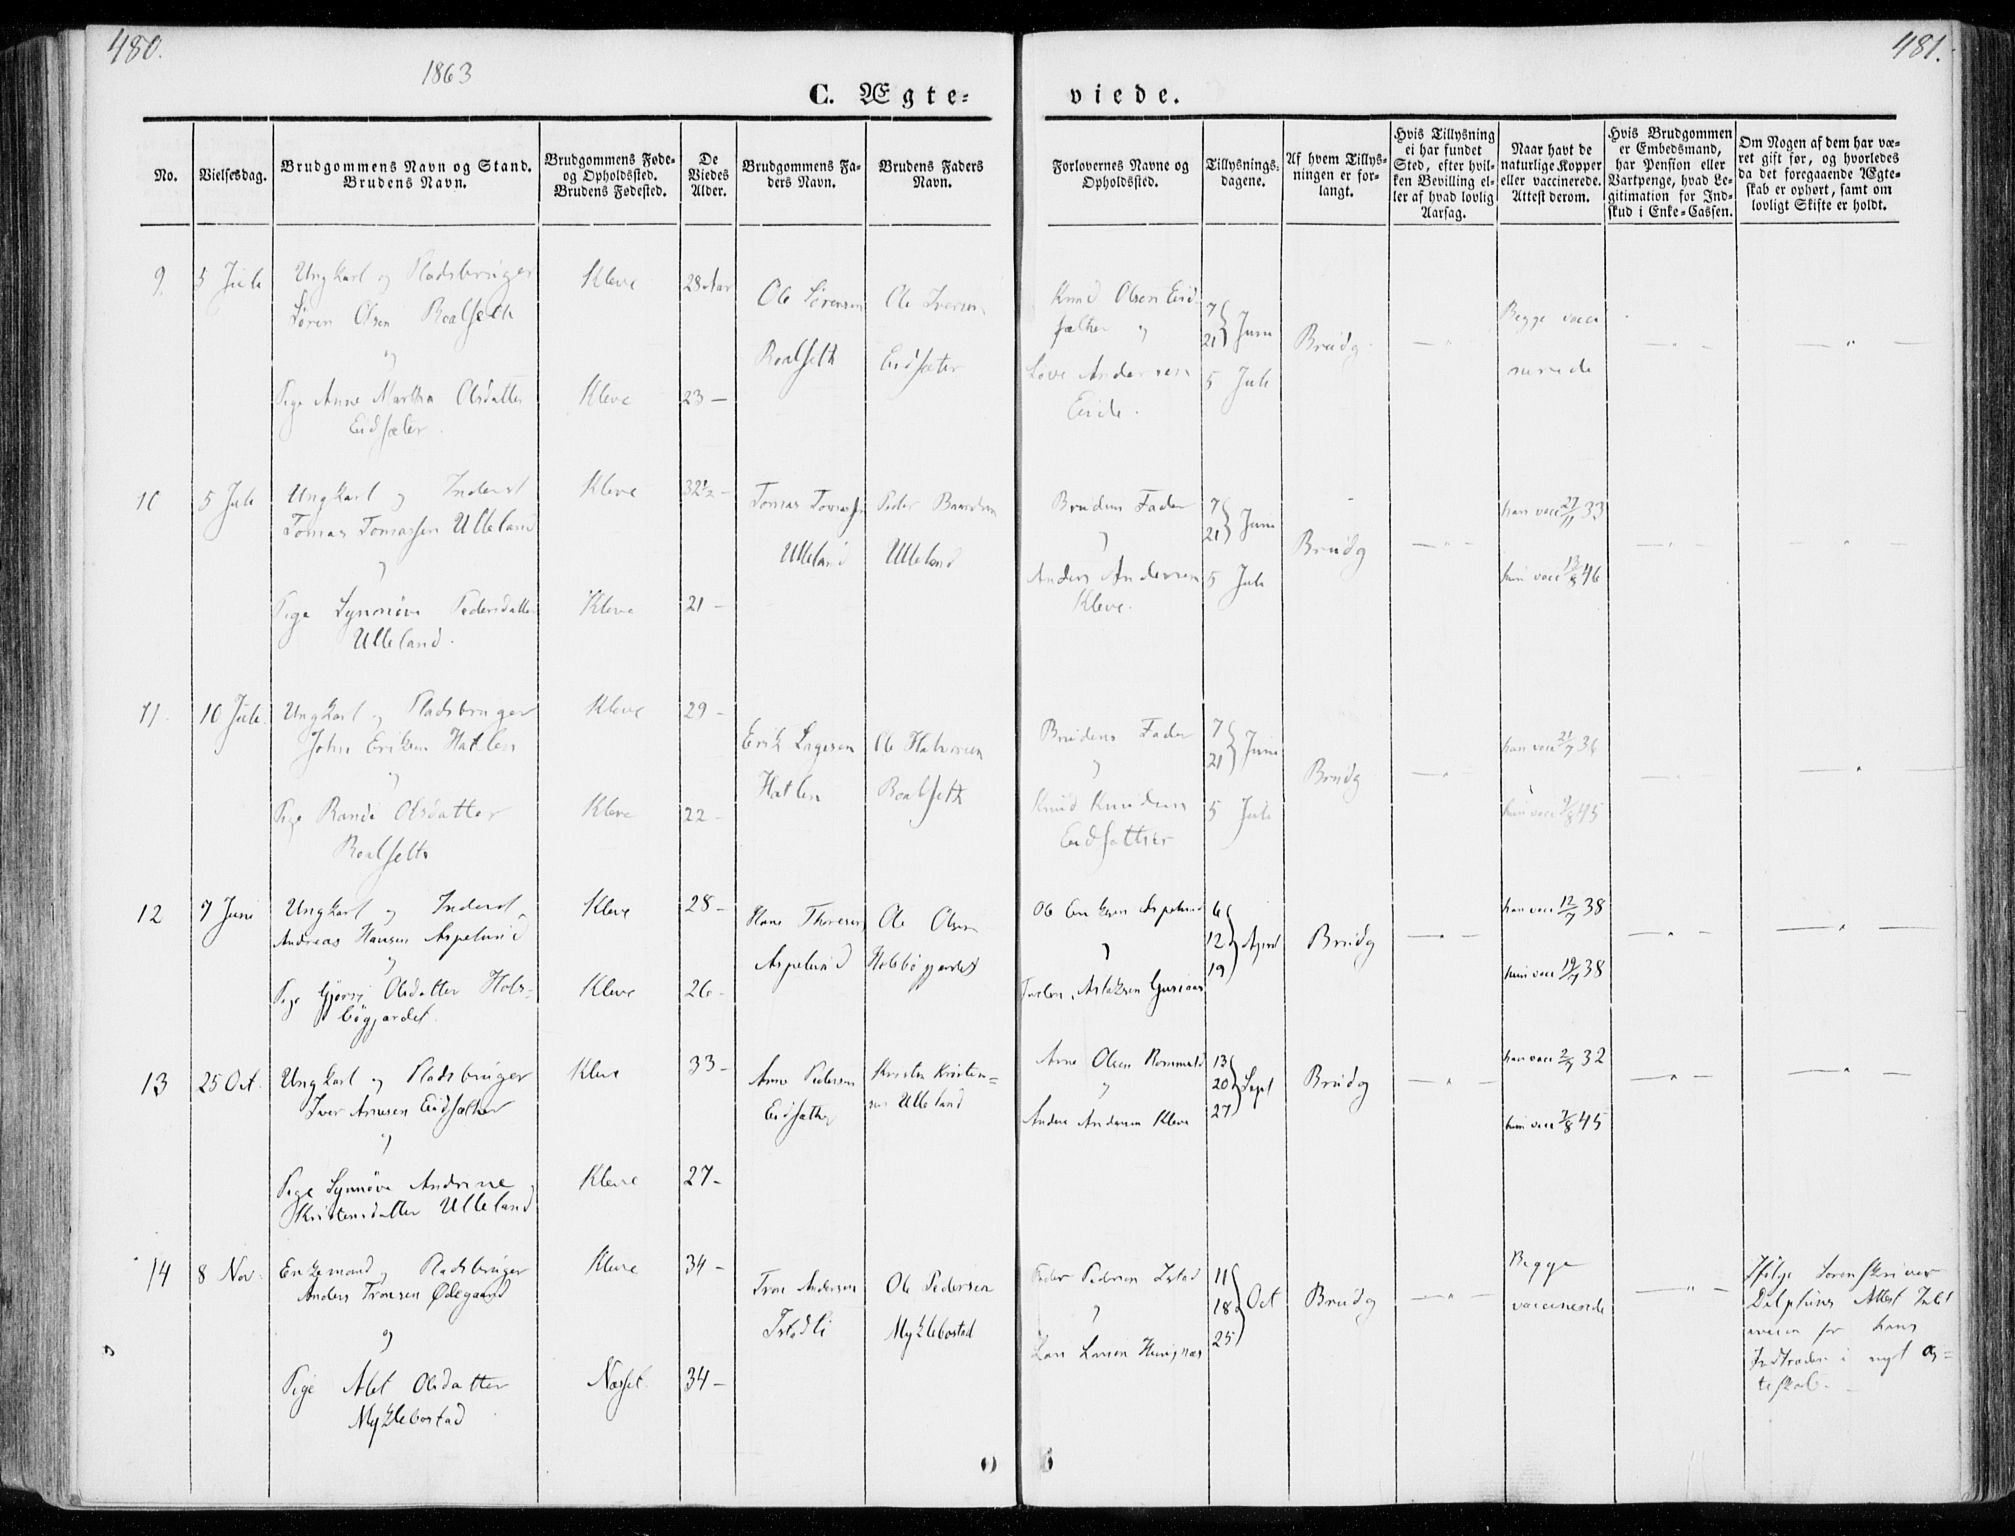 480.
481.
1863
C. Ægte=
viede.
No.
Vielsesdag.
Brudgommens Navn og Stand.
Brudens Navn.
Brudgommens Føde=
og Opholdssted.
Brudens Fødested.
De
Viedes
Alder.
Brudgommens Fa=
ders Navn.
Brudens Faders
Navn.
Forlovernes Navne og
Opholdssted.
Tillysnings=
dagene.
Af hvem Tillys=
ningen er for=
langt.
Hvis Tillysning
ei har fundet
Sted, efter hvil=
ken Bevilling el=
ler af hvad lovlig
Aarsag.
Naar havt de
naturlige Kopper
eller vaccinerede.
Attest derom.
Hvis Brudgommen
er Embedsmand,
har Pension eller
Vartpenge, hvad Le=
gitimation for Ind=
skud i Enke=Cassen.
Om Nogen af dem har væ=
ret gift før, og hvorledes
da det foregaaende Ægte=
skab er ophørt, samt om
lovligt Skifte er holdt.
9. 5 Juli
Ungkarl og Pladsbruger
Søren Olsen Roalseth
og
Pige Anne Martha Olsdatter
Eidsæter.
Kleve
Kleve
28 Aar
23 —
Ole Sørensen
Roalseth
Ole Iversen
Eidsæter
Knud Olsen Eid-
sæther og
Andersen
Eide.
7
21 Juni
5 Juli
Brudg
Begge vacci
nerede
10 5 Juli
Ungkarl og Inderst
Tomas Tomassen Ulleland
og
Pige Synnøve Pedersdatter
Ulleland.
Kleve
Kleve
32½ -
21 -
Tomas Tomass
Ulleland
Peder
Ulleland
Brudens Fader
og
Anders Andersen
Kleve.
7
21 Juni
5 Juli
Brudg
han vacc 27/11 33
hun vacc 13/8 46
11. 10 Juli.
Ungkarl og Pladsbruger
John Eriksen Hatlen
og
Pige Randi Olsdatter
Roalseth
Kleve
Kleve
29 -
22 -
Erik
Hatlen
Ole Halvorsen
Roalseth
Brudens Fader
og
Knud Knudsen
Eidsætter
7
21 Juni
5 Juli
Brudg
han vacc 21/7 36
hun vacc 45
12 7 Juni
Ungkarl og Inderst
Andreas Hansen Aspelund
og
Pige Olsdatter Hols-
bøgjærdet.
Kleve
Kleve
28 -
26 -
Hans Thoresen
Aspelund
Ole Olsen
Holsbøgjærdet
Ole Aspelund
og
6
12 April
19
Brudg
han vacc 12/7 38
hun vacc 19/7 38
13 25 Oct.
Ungkarl og Pladsbruger
Iver Arnesen Eidsæther
og
Pige Synnøve Andrine
Kristensdatter Ulleland
Kleve
Kleve
33 -
27 -
Arne Pedersen
Eidsæther
Kristen Kristen=
sen Ulleland
Arne Olsen
og
Anders Andersen Kleve
13
20 Sept
27
Brudg
han vacc 2/7 32
hun vacc 7/8 45
14 8 Nov.
Enkemand, Pladsbruger
Anders Tronsen Ødegaard
og
Pige Alet Olsdatter
Myklebostad
Kleve
Nesset.
34 -
34 -
Tron Andersen
Istadli
Ole Pedersen
Myklebostad
Peder Pedersen Istad
og
Lars Larsen
11
18 Oct
25
Brudg
Begge
vaccinerede
Ifølge Sorenskriver
Attest Intet
iveien for hans
Indtræden i nyt Æg=
teskab.